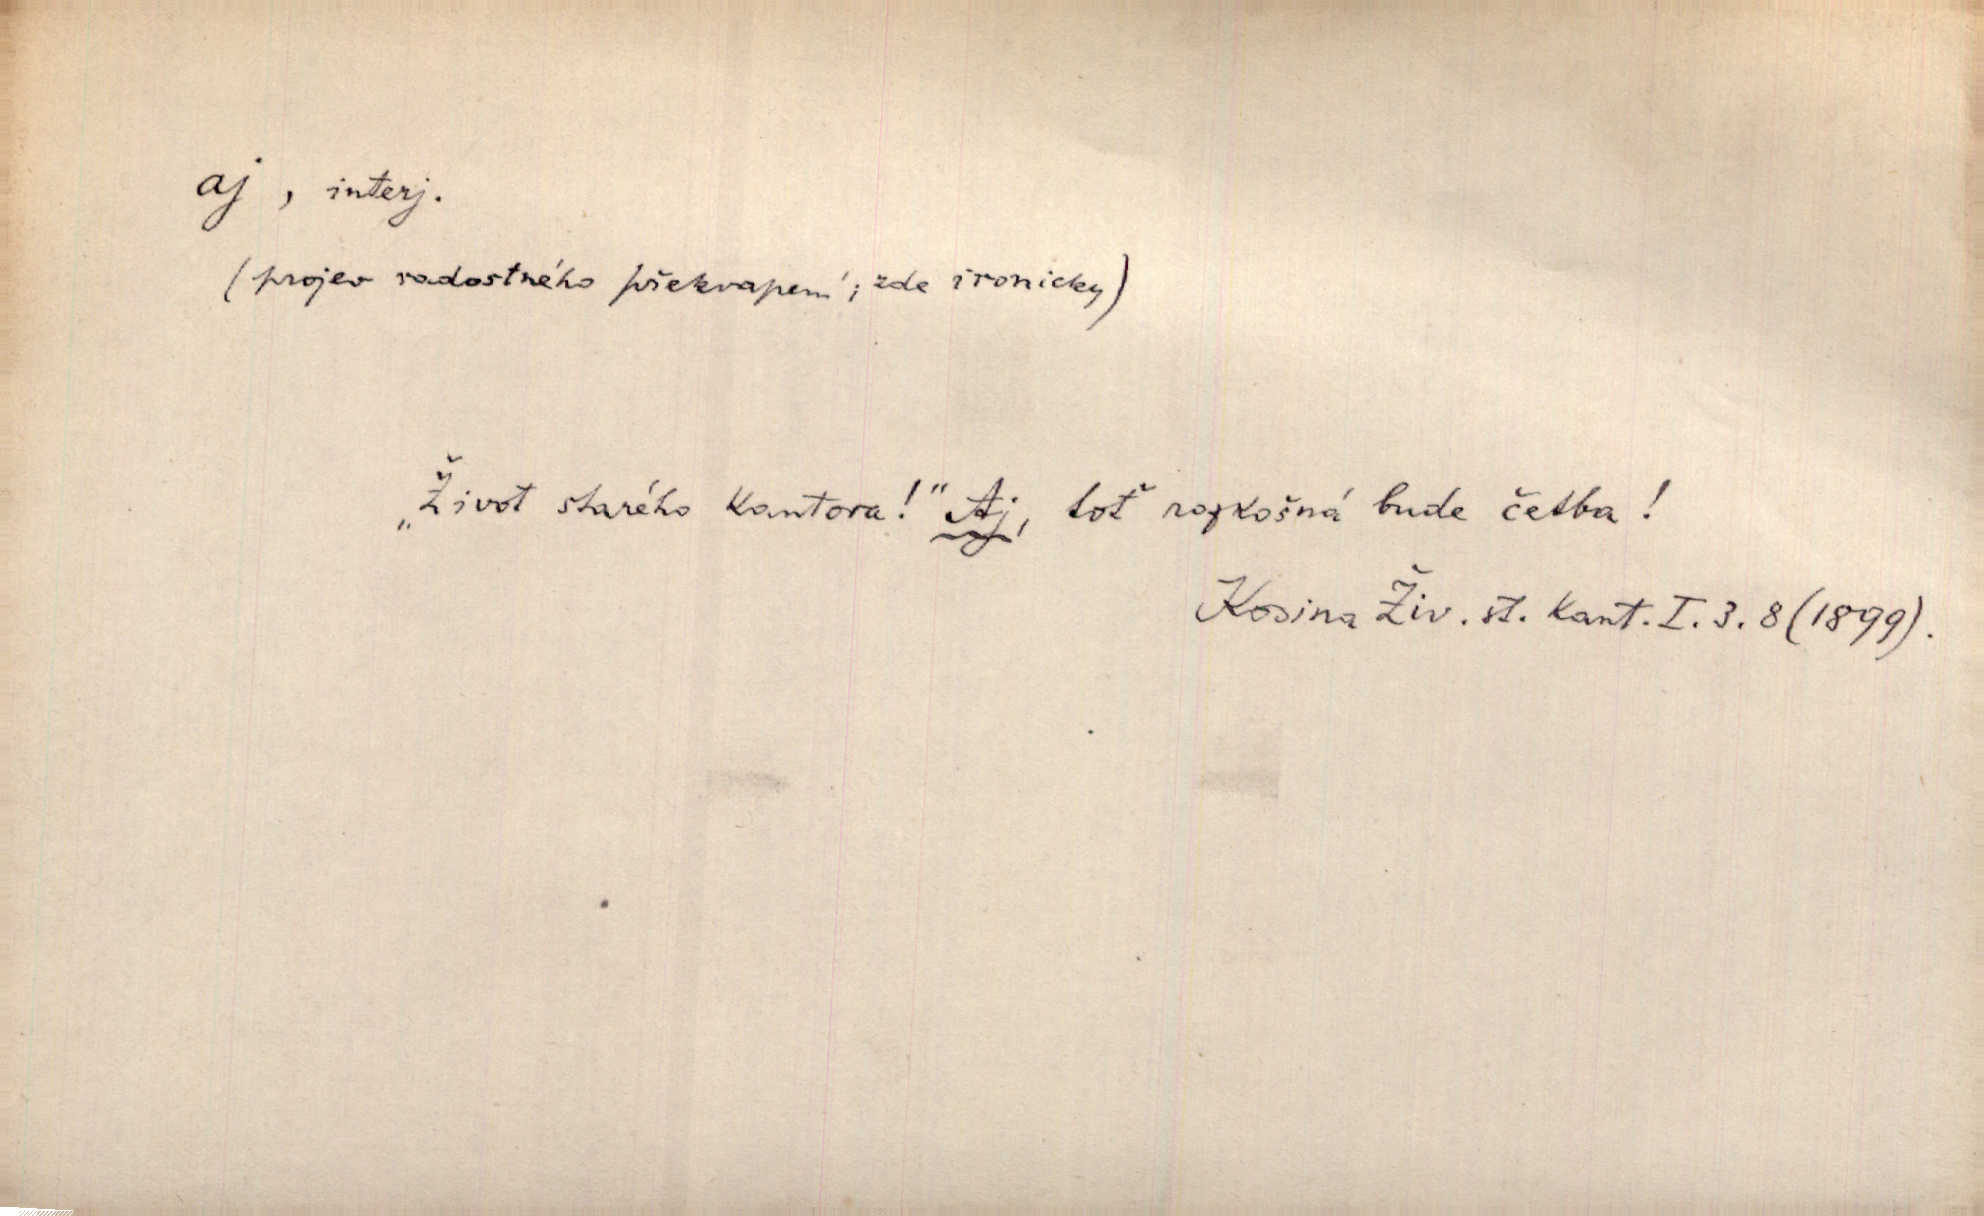 aj, interj.
(projev radostného překvapení; zde ironicky)
„Život starého kantora!" Aj, toť rozkošná bude četba!
Kosina Živ. st. kant. I. 3. 8 (1899).